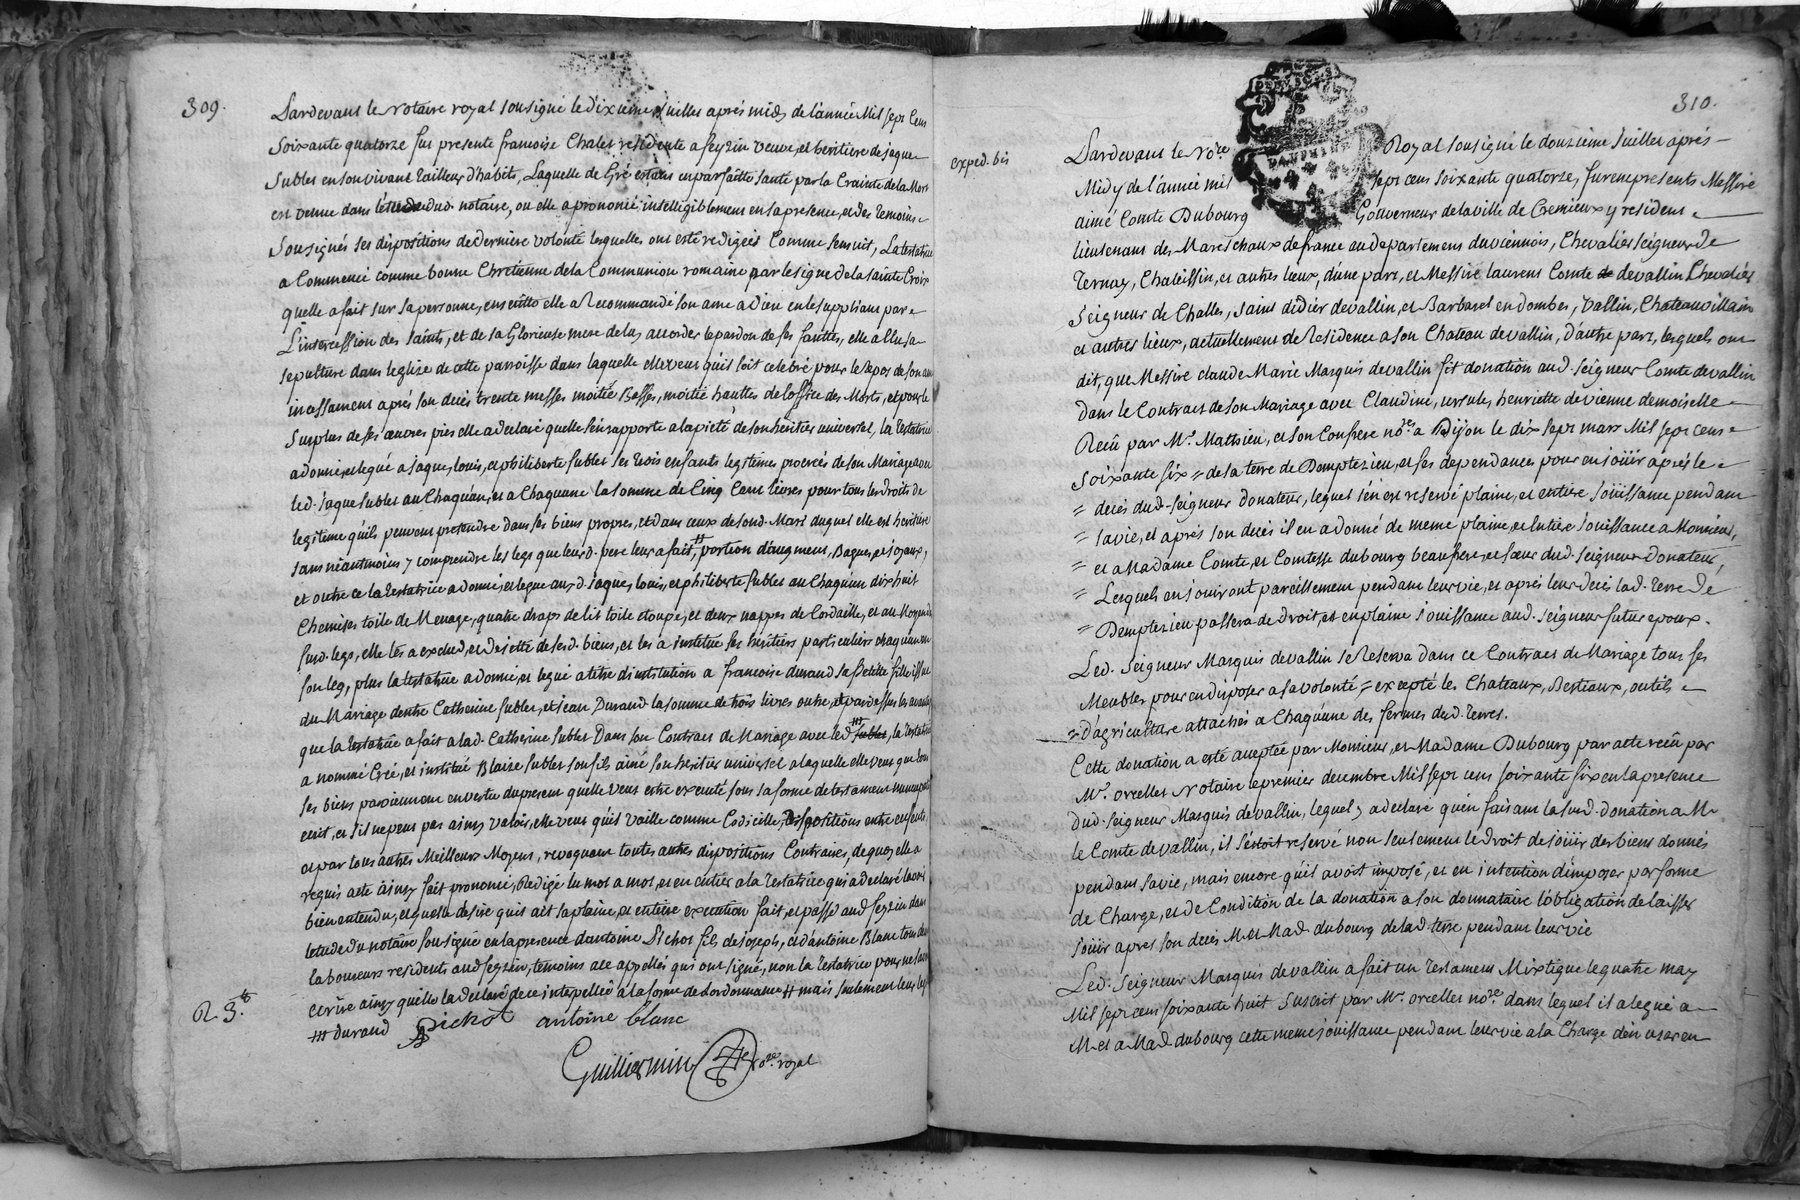 309.
Pardevant le notaire royal sousigné le dixieme Juillet aprés midy de l'année Mil sept Cent
Soixante quatorze fut presente francoise Chalet residente a feyzin veuve, et heritiere de jaque
Sublet en son vivant Tailleur d'habits, Laquelle de Gré estant en parfaitte santé par la Crainte de la Mort
est venue dans letude dud. notaire, ou elle a prononcé intelligiblement en sa presence, et des temoins
Sousignés ses dispositions de derniere volonté lesquelles ont esté redigées Comme s'ensuit, La testatrice
a Commencé comme bonne Chretienne de la Communion romaine par le signe de la sainte Croix
quelle a fait sur sa personne, ensuitte elle a Recommandé son ame a Dieu en le suppliant par
L'intercession des saints, et de sa Glorieuse mere de luy accorder le pardon de ses fauttes, elle a llu sa
sepulture dans leglize de cette parroisse dans laquelle elle veut qu'il soit celebré pour le repos de son ame
incessament aprés son decés trente messes moitié Basses, moitié hauttes de loffice des Morts, et pour le
Surplus de ses œuvres pies elle a declaré quelle s'en rapporte a la pieté de son heritier universel, la Testatrice
a donné, et legué a jaque, louis, et philiberte sublet ses trois enfants legitimes procreés de son Mariage avec
led. jaque sublet au Chaquun, et a Chaquune la somme de Cinq Cent livres pour tous les droits de
legitime qu'ils peuvent pretendre dans ses biens propres, et dans ceux de sond. Mari duquel elle est heritiere
sans neantmoins y comprendre les legs que leurd. pere leur a fait, # portion d'augment, Bagues, et joyaux,
et outre ce la Testatrice a donné, et legué auxd. jaque, louis, et philiberte sublet au Chaquun dix huit
Chemises toile de Menage, quatre draps de lit toile etoupe, et deux nappes de Cordaille, et au Moyen de
sud. legs, elle les a exclud, et dejetté de sesd. biens, et les a institué ses heritiers particuliers chaquun en
son leg, plus la testatrice a donné, et legué a titre d'institution a francoise durand sa Petitte fille issue
du Mariage d'entre Catherine sublet, et jean Durand la somme de trois livres outre, et pardessus les avantages
que la Testatrice a fait a lad. Catherine sublet Dans son Contract de Mariage avec led. ## sublet, la Testatrice
a nommé Creé, et institué Blaise sublet son fils aimé son heritier universel a laquelle elle veut que tous
ses biens parviennent en vertu du present quelle veut estre executé sous la forme de testament nuncupatif
ecrit, et s'il ne peut pas ainsy valoir, elle veut qu'il vaille comme Codicille, dispositions entre enfants,
et par tous autres Meilleurs Moyens, revoquant toutes autres dispositions Contraires, de quoy elle a
requis acte ainsy fait prononcé, Redigé lu mot a mot, et en entier a la Testatrice qui a declaré lavoir
bien entendu, et quelle desire quil ait sa plaine, et entiere execution fait, et passé aud. feyzin dans
letude du notaire sousigné en la presence d'antoine Pichot fils de joseph, et d'antoine Blanc tous deux
laboureurs residents aud. feyzin, temoins a ce appellés qui ont signé, non la Testatrice pour ne savoir
ecrire ainsy quelle la declaré de ce interpellée a la forme de Lordonnance # mais seulement leur leg
## durand Pichot antoine blanc
R. 3.
Guilliermin no.re royal
310.
exped. bis
DAUPHINE
Pardevant le no.re Royal sousigné le douzieme Juillet aprés
Midy de l'année mil sept cent soixante quatorze, furent presents Messire
aimé Comte Dubourg Gouverneur de la ville de Cremieux y resident
lieutenant des Mareschaux de france au departement du viennois, Chevalier seigneur de
Ternay, Chaleissin, et autres lieux, d'une part, et Messire laurent Comte de devallin Chevalier
Seigneur de Challes, saint didier devallin, et Barbarel en dombes, vallin, Chateauvillain
et autres lieux, actuellement de Residence a son Chateau de vallin, d'autre part, lesquels ont
dit, que Messire claude Marie Marquis devallin fit donation aud. Seigneur Comte devallin
dans le Contract de son Mariage avec Claudine, ursule, henriette de vienne demoiselle
Reçu par Mr. Mathieu, et son Confrere no.res a Dijon le dix sept mars Mil sept cent
Soixante six = de la terre de Demptezieu, et ses dependances pour en joüir aprés le
= decés dud. seigneur donateur, lequel s'en est reservé plaine, et entiere joüissance pendant
= sa vie, et aprés son decés il en a donné de meme plaine, et entiere jouissance a Monsieur,
= et a Madame Comte, et Comtesse dubourg beaufrere, et sœur dud. seigneur donateur,
= Lesquels en jouiront pareillement pendant leur vie, et aprés leur decés lad. terre de
= Demptezieu passera de droit, et en plaine jouissance aud. seigneur futur epoux.
Led. Seigneur Marquis devallin se Reserva dans ce Contract de Mariage tous ses
Meubles pour en disposer a sa volonté = excepté les Chateaux, Bestiaux, outils
= d'agriculture attachés a Chaquune des fermes desd. terres.
Cette donation a esté acceptée par Monsieur, et Madame Dubourg par acte recu par
Mr. orcellet Notaire le premier decembre Mil sept cent soixante six en la presence
dud. seigneur Marquis devallin, lequel y a declaré qu'en faisant la susd. donation a Mr.
le Comte devallin, il s'étoit reservé non seulement le droit de joüir des biens donnés
pendant sa vie, mais encore qu'il avoit imposé, et eu intention d'imposer par forme
de Charge, et de Condition de la donation a son donnataire l'obligation de laisser
joüir apres son decés M. et Mad. dubourg de lad. terre pendant leur vie
Led. Seigneur Marquis devallin a fait un Testament Mixtique le quatre may
Mil sept cent soixante huit Suscrit par Mr. orcellet no.re dans lequel il a legué a
M. et a Mad. dubourg cette meme jouissance pendant leur vie a la Charge d'en user en